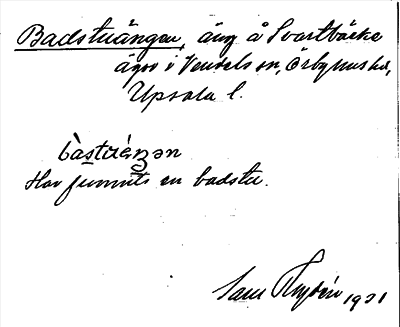 Badstuängen, äng å Svartbäcks
ägor i Vendels sn, Örbyhus hd,
Upsala l.
bàstuéŋən
Har funnits en badstu.
Sam Rydén 1921